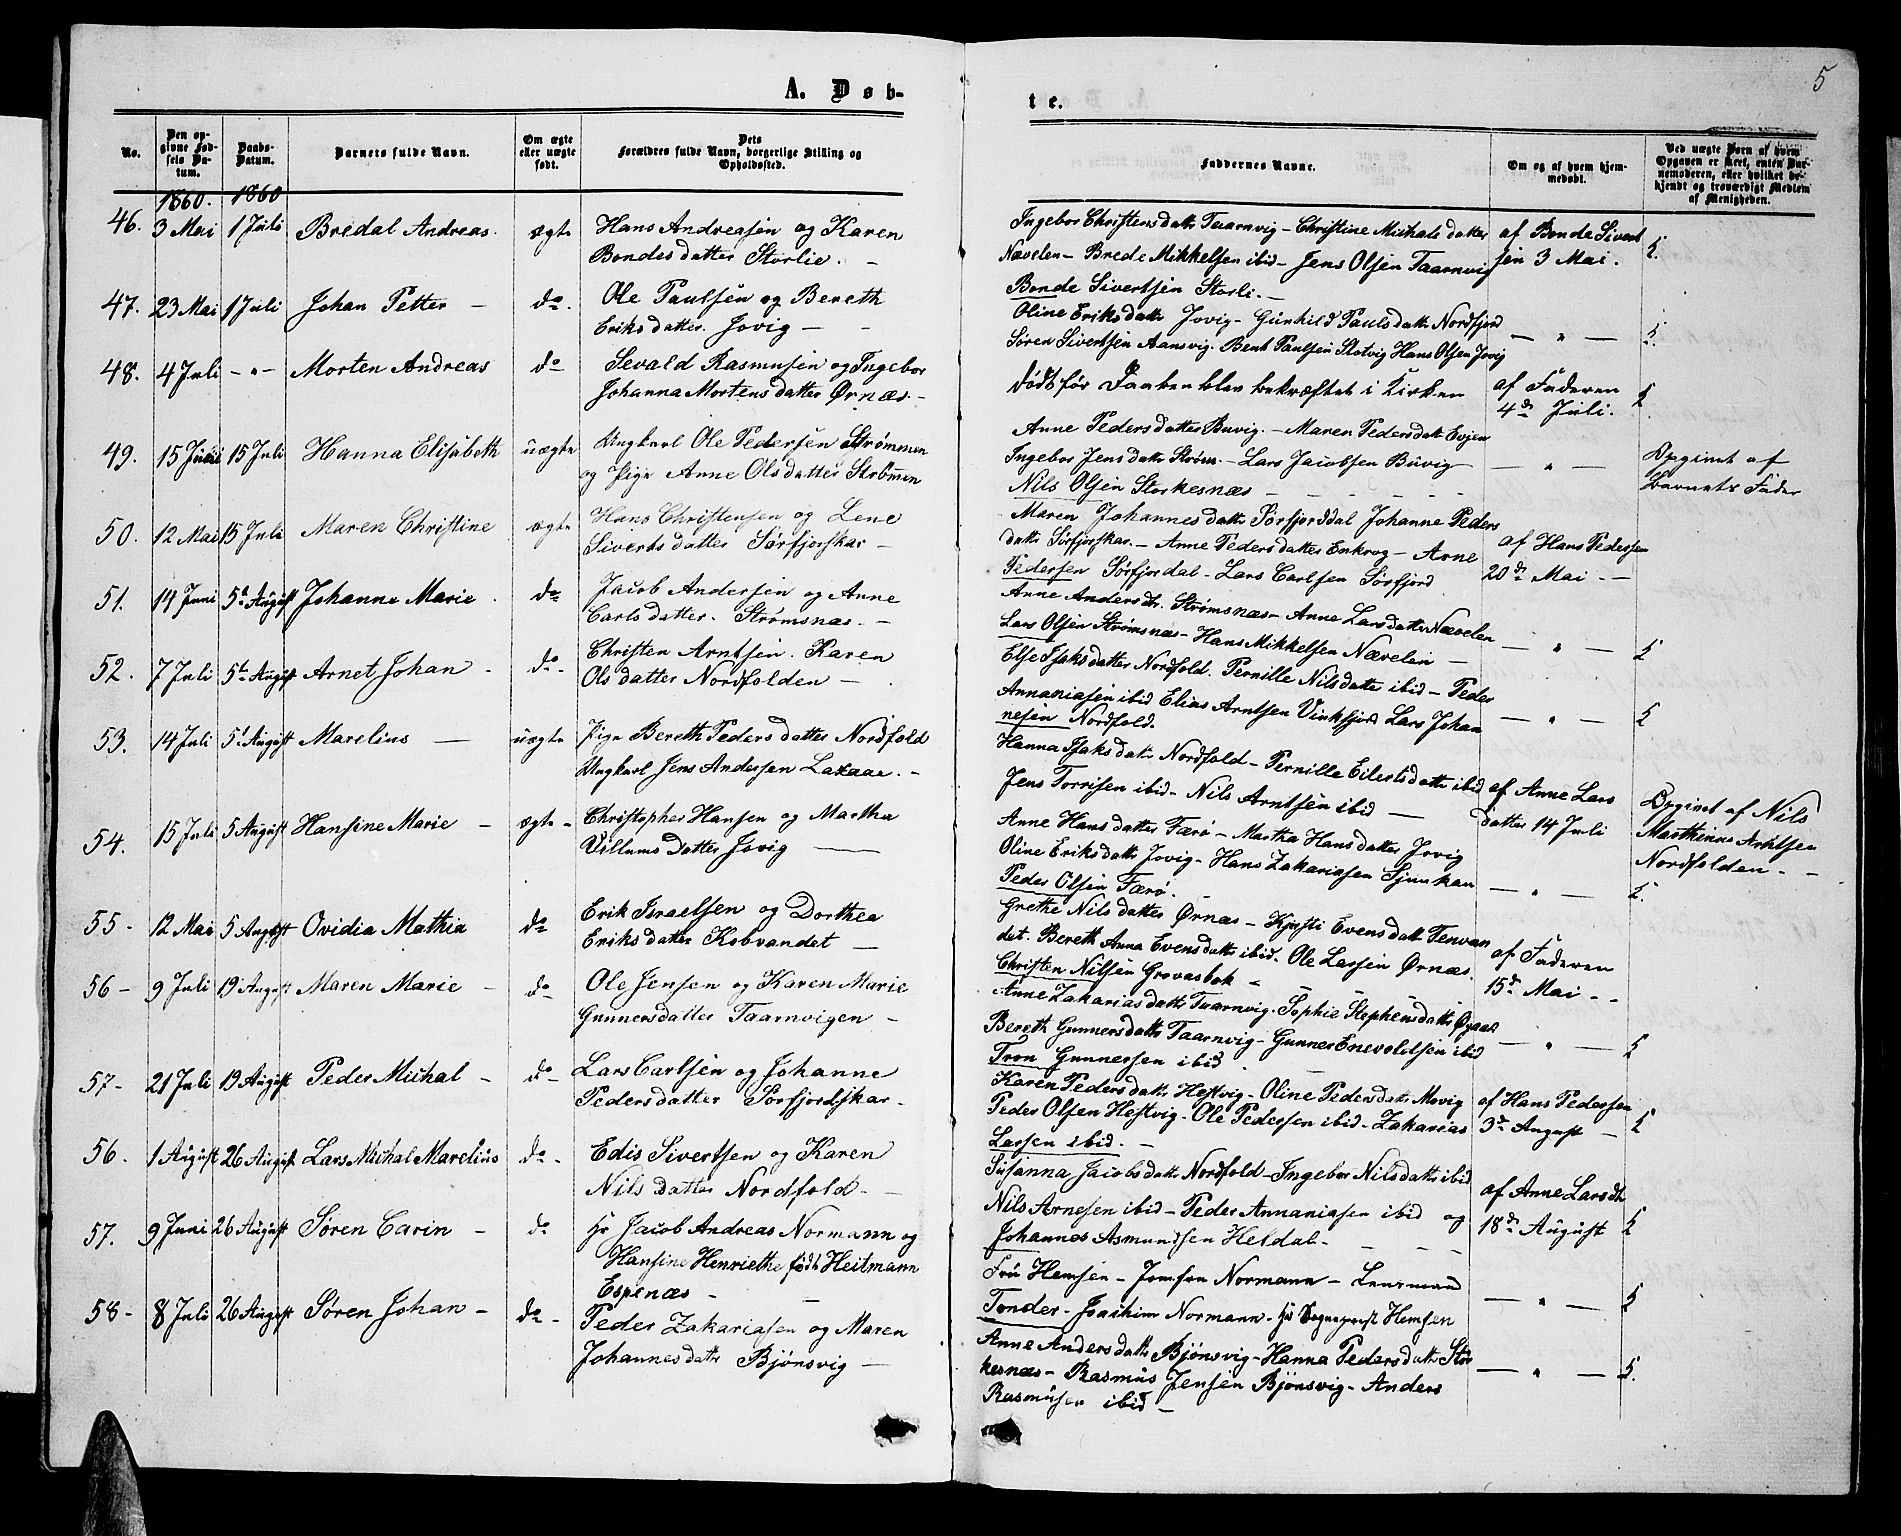 5
A. Døb-
te.
No.
Den opgivne Fødsels Datum.
Daabs-Datum.
Barnets fulde Navn.
Om ægte eller uægte født.
Dets Forældres fulde Navn, borgerlige Stilling og Opholdssted.
Faddernes Navne.
Om og af hvem hjemmedøbt.
Ved uægte Børn af hvem Opgaven er skeet, enten Barnemoderen, eller hvilket bekjendt og troværdigt Medlem af Menigheden.
1860. 1860
46. 3 Mai 1 Juli Bredal Andreas. ægte Hans Andreasen og Karen
Bondesdatter Storlie. -
Ingebor Christensdatter Taarnvig - Christine Michalsdatter
Nævelen - Brede Mikkelsen ibid - Jens Olsen Taarnvig
Bonde Sivertsen Storli. -
af Bonde Sivert
sen 3 Mai.
47. 23 Mai 1 Juli Johan Petter - do. Ole Paulsen og Bereth
Eriksdatter Jovig - -
Oline Eriksdatter Jovig - Gunhild Paulsdatter Nordfjord
Søren Sivertsen Aansvig. Bent Paulsen Slotvig Hans Olsen Jovig
- " -
48. 4 Juli - " - Morten Andreas do Sevald Rasmusen og Ingebor
Johanna Mortensdatter Ørnæs -
Død før Daaben blev bekræftet i Kirken
af Faderen
4de Juli.
49. 15 Juli 15 Juli Hanna Elisabeth uægte Ungkarl Ole Pedersen Strømmen
og Pige Anne Olsdatter Strømmen
Anne Pedersdatter Buvig. - Maren Pedersdatter Evjen
Ingebor Jensdatter Strøm - Lars Jacobsen Buvig
Nils Olsen Storkesnæs - - - -
- " -
Opgivet af
Barnets Fader
50. 12 Mai 15 Juli Maren Christine ægte Hans Christensen og Lene
Sivertsdatter Sørfjorskar -
Maren Johannesdatter Sørfjorddal Johanne Peders
datter Sørfjorskar. - Anne Pedersdatter Enkrog - Arne
Pedersen Sørfjordal - Lars Carlsen Sørfjord
af Hans Pedersen
20de Mai -
51. 14 Juni 5t August Johanne Marie. do Jacob Andersen og Anne
Carlsdatter. Strømsnæs. -
Anne Andersdtr. Strømsnæs - Anne Larsdatter Nævelen
Lars Olsen Strømsnæs - Hans Mikkelsen Nævelen -
- " -
52. 7 Juli 5t August Arnet Johan - do - Christen Arntsen. Karen
Olsdatter Nordfolden - .
Else Isaksdatter Nordfold. Pernille Nilsdatter ibid - Peder
Annaniasen ibid Elias Arntsen Vinkfjord Lars Johan
nesen Nordfold.
- " -
53. 14 Juli 5t August Marelius - uægte Pige Bereth Pedersdatter Nordfold
Ungkarl Jens Andersen Laxaae. -
Hanna Isaksdatter Nordfold - Pernille Eilertsdatter ibid
Jens Torrisen ibid - Nils Arntsen ibid -
af Anne Lars
datter 14 Juli
Opgivet af Nils
Marthinus Arntsen
Nordfolden - -
54. 15 Juli 5 August Hansine Marie - ægte - Christopher Hansen og Martha
Villumsdatter Jovig -
Anne Hansdatter Færø - Martha Hansdatter Jovig
Oline Eriksdatter Jovig - Hans Zakariasen Sjunkan
Peder Olsen Færø.
- " -
55 - 12 Mai 5 August Ovidia Mathia do Erik Israelsen og Dorthea
Eriksdatter Kobvandet -
Grethe Nilsdatter Ørnæs - Kjersti Evensdatter Tenvan
det. Bereth Anna Evensdatter ibid. Ole Larsen Ørnæs.
Christen Nilsen Grovasbok -
af Faderen
15de Mai - -
56 - 9 Juli 19 August Maren Marie - do - Ole Jensen og Karen Marie
Gunnersdatter Taarnvigen -
Anne Zakariasdatter Taarnvig. Sophie Stephensdatter
Bereth Gunnersdatter Taarnvig - Gunner Enevoldsen ibid
Tron Gunnersen ibid.
- " -
57 - 21 Juli 19 August Peder Michal - do - Lars Carlsen og Johanne
Pedersdatter Sørfjordskar -
Karen Pedersdatter Hestvig - Oline Pedersdatter Movig
Peder Olsen Hestvig - Ole Pedersen ibid - Zakarias
Larsen ibid. -
af Hans Pedersen
3de August -
56. 1 August 26 August Lars Michal Marelius do - Edis Sivertsen og Karen
Nilsdatter Nordfold. -
Susanna Jacobsdatter Nordfold - Ingebor Nilsdatter ibid
Nils Arnesen ibid - Peder Annaniasen ibid og
Johannes Asmundsen Heldal -
af Anne Larsdtr
18de August
57. 9 Juni 26 August Søren Carin - do Hr Jacob Andreas Normann og
Hansine Henriethe født Heitmann
Espenæs -
Fru Hemsen - Jomfru Normann - Lensmand
Tonder - Joachim Normann - Hr Sogneprest Hemsen
- " -
58 - 8 Juli 26 August Søren Johan - do - Peder Zakariasen og Maren
Johannesdatter Bjønsvig -
Anne Andersdatter Bjønsvig - Hanna Pedersdatter Stor
kesnæs - Rasmus Jensen Bjønsvig - Anders
Rasmusen ibid -
- " -